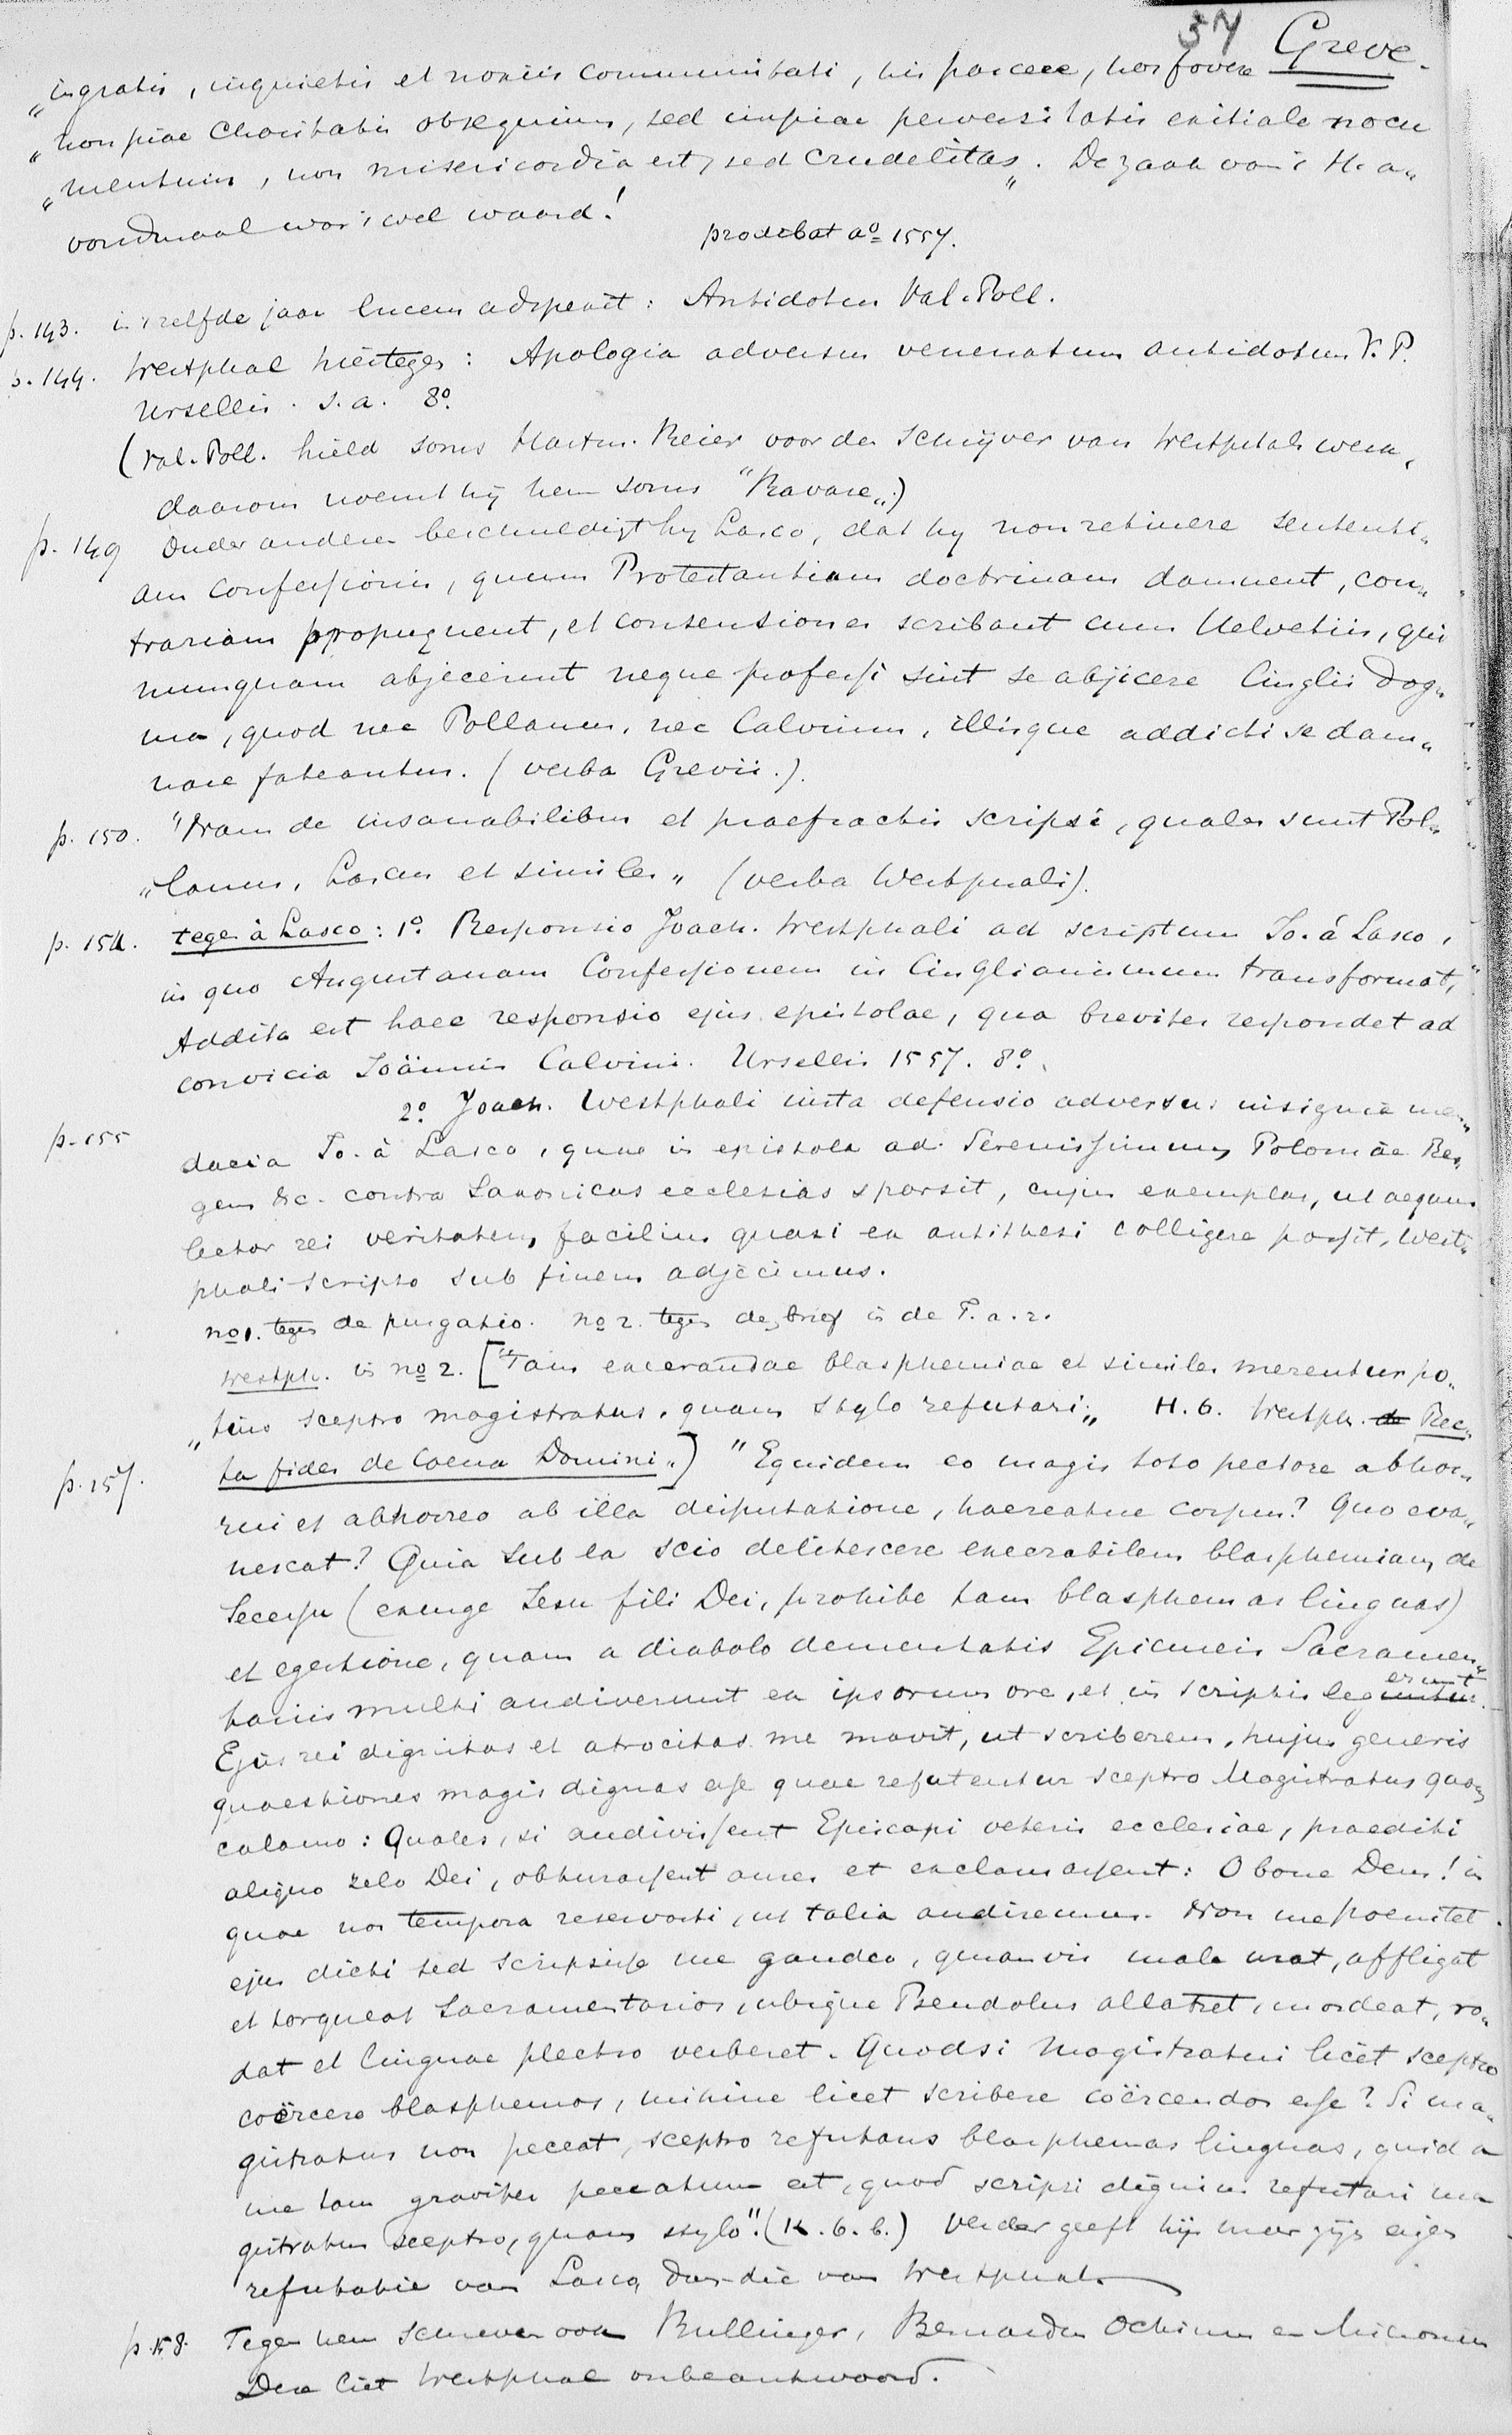 37 Greve.
„ingratis, inquietis et noxiis communitati, his parcere, hos fovere
„non piae charitatis obsequium, sed impiae perversitatis exitiale nocu
„mentum, non misericordia est, sed crudelitas„. De zaak van 't H. a„
vondmaal was 't wel waard!
prodibat ao 1557.
p. 143. in 'tzelfde jaar lucem adspexit: Antidotum Val. Poll.
p. 144. Westphal hiertegen: Apologia adversus venenatum antidotum V. P.
Ursellis. s. a. 8o.
(Val. Poll. hield soms Martin. Reier voor den schrijver van Westphals werk,
daarom noemt hij hem soms "Ravare„.)
p. 149 Onder anderen beschuldigt hij Lasco, dat hij non retinere sententi„
am confessionis, quum Protestantium doctrinam damnent, con„
trariam propugnent, et consensiones scribant cum Helvetiis, qui
numquam abjecerunt neque professi sint se abjicere Cinglii dog„
ma, quod nec Pollanus, nec Calvinus, illisque addicti se dam„
nare fateantur. (verba Grevii.).
p. 150. "Nam de insanabilibus et praefractis scripsi, quales sunt Pol„
„lanus, Lascus et similes„ (verba Westphali).
p. 154. tegen à Lasco: 1o. Responsio Joach. Westphali ad scriptum Jo. á Lasco,
in quo Augustanam Confessionem in Cinglianismum transformat,
Addita est haec responsio ejus epistolae, qua breviter respondet ad
convicia Joännis Calvini. Ursellis 1557. 8o.
2o. Joach. Westphali iusta defensio adversus insignia men„
p. 155 dacia Jo. à Lasco, quae in epistola ad Serenissimum Poloniae Re„
gem &c. contra Saxonicas ecclesias sparsit, cujus exemplar, ut aequus
lector rei veritatem facilius quasi ex antithesi colligere possit, West„
phali scripto sub finem adjecimus.
no 1. tegen de purgatio. no 2. tegen den brief in de T. a. r.
Westph. in no 2. ["Tam execrandae blasphemiae et similes merentur po„
„tius sceptro magistratus, quam stylo refutari„ H. 6. Westph. de Rec„
p. 157. ta fides de Coena Domini„] "Equidem eo magis toto pectore abhor„
rui et abhorreo ab illa disputatione, haereatne corpus? Quo eva„
nescat? Quia sub ea scio delitescere execrabilem blasphemiam, de
secessu (exurge Jesu fili Dei, prohibe tam blasphemas linguas)
et egestione, quam a diabolo dementatis Epicureis Sacramen„
tariis multi audiverunt ex ipsorum ore, et in scriptis leguntur erunt.
Ejus rei dignitas et atrocitas me movit, ut scriberem, hujus generis
quaestiones magis dignas esse quae refutentur sceptro Magistratus quam
calamo: Quales, si audivissent Episcopi veteris ecclesiae, praediti
aliquo zelo Dei, obturassent aures et exclamassent: O bone Deus! in
quae nos tempora reservasti, ut talia audiremus. Non me poenitet
ejus dicti sed scripsisse me gaudeo, quamvis male urat, affligat
et torqueat Sacramentarios, ubique Pseudolus allatret, mordeat, ro„
dat et linguae plectro verberet. Quodsi magistratui licet sceptro
coërcere blasphemos, mihine licet scribere coërcendos esse? Si ma„
gistratus non peccat, sceptro refutans blasphemas linguas, quid a
me tam graviter peccatum est, quod scripsi dignius refutari ma
gistratus sceptro, quam stylo". (K. 6. b.) Verder geeft hij meer zijn eigen
refutatie van Lasco, dan die van Westphal.
p. 158. Tegen hem schreven ook Bullinger, Bernardus Ochinus en Micronius
Deze liet Westphal onbeantwoord.